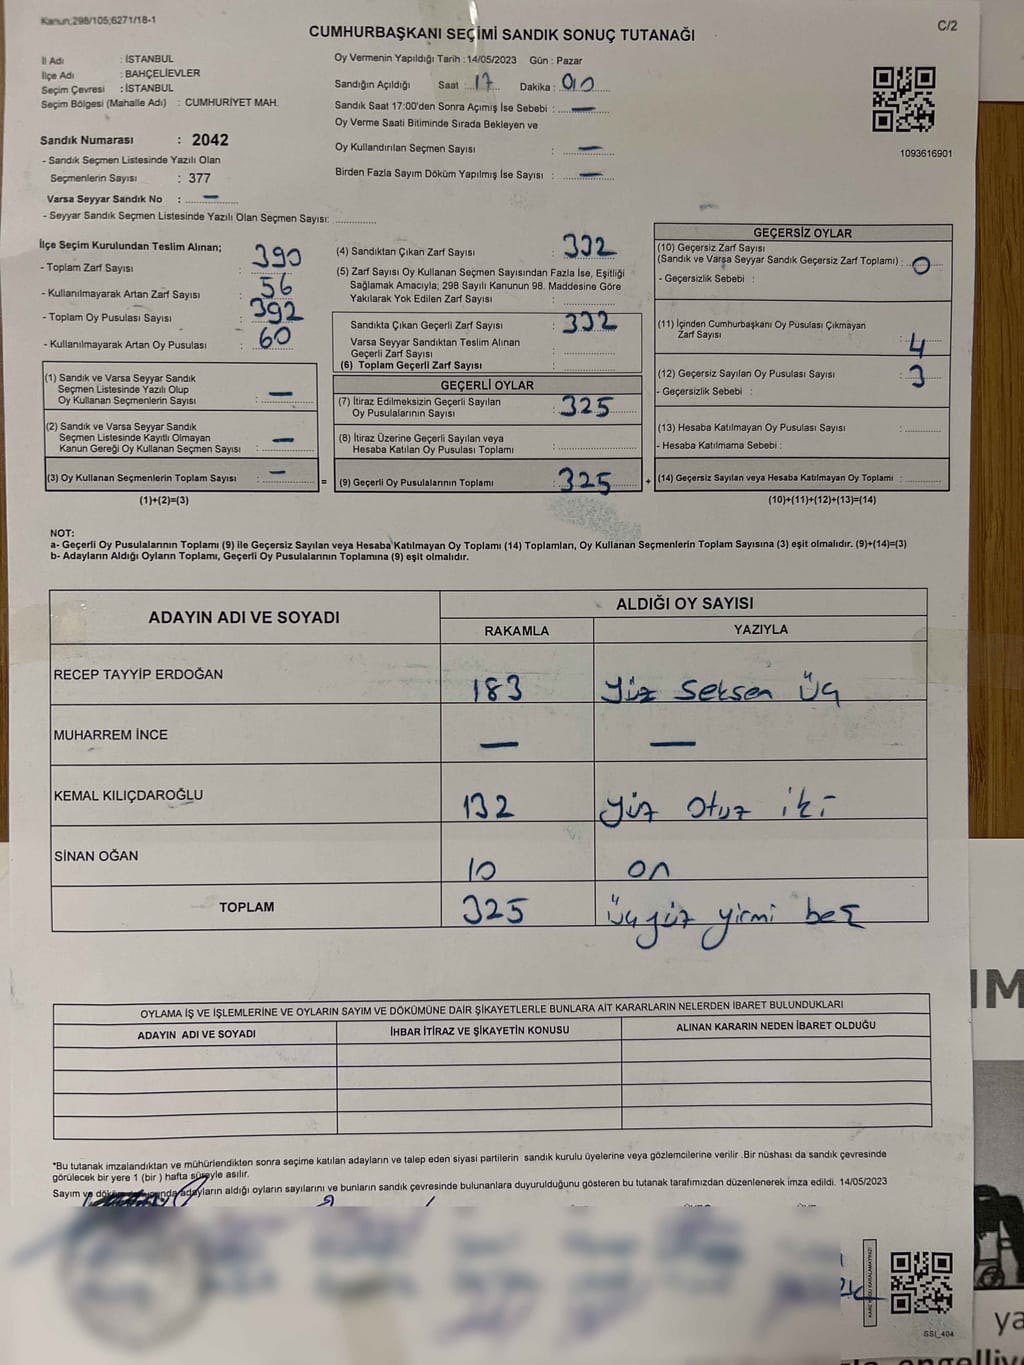 Kanun;298/105;6271/18-1
C/2
CUMHURBAŞKANI SEÇİMİ SANDIK SONUÇ TUTANAĞI
İl Adı : İSTANBUL
İlçe Adı : BAHÇELİEVLER
Seçim Çevresi : İSTANBUL
Seçim Bölgesi (Mahalle Adı) : CUMHURİYET MAH.
Oy Vermenin Yapıldığı Tarih : 14/05/2023 Gün : Pazar
Sandığın Açıldığı Saat : 17 Dakika : 00
Sandık Saat 17:00'den Sonra Açımış İse Sebebi : —
Oy Verme Saati Bitiminde Sırada Bekleyen ve
Oy Kullandırılan Seçmen Sayısı : —
Birden Fazla Sayım Döküm Yapılmış İse Sayısı : —
1093616901
Sandık Numarası : 2042
- Sandık Seçmen Listesinde Yazılı Olan
Seçmenlerin Sayısı : 377
Varsa Seyyar Sandık No : —
- Seyyar Sandık Seçmen Listesinde Yazılı Olan Seçmen Sayısı:
İlçe Seçim Kurulundan Teslim Alınan;
- Toplam Zarf Sayısı : 390
- Kullanılmayarak Artan Zarf Sayısı : 56
- Toplam Oy Pusulası Sayısı : 392
- Kullanılmayarak Artan Oy Pusulası : 60
(1) Sandık ve Varsa Seyyar Sandık
Seçmen Listesinde Yazılı Olup
Oy Kullanan Seçmenlerin Sayısı : —
(2) Sandık ve Varsa Seyyar Sandık
Seçmen Listesinde Kayıtlı Olmayan
Kanun Gereği Oy Kullanan Seçmen Sayısı : —
(3) Oy Kullanan Seçmenlerin Toplam Sayısı : —
(1)+(2)=(3)
=
(4) Sandıktan Çıkan Zarf Sayısı : 332
(5) Zarf Sayısı Oy Kullanan Seçmen Sayısından Fazla İse, Eşitliği
Sağlamak Amacıyla; 298 Sayılı Kanunun 98. Maddesine Göre
Yakılarak Yok Edilen Zarf Sayısı :
Sandıkta Çıkan Geçerli Zarf Sayısı : 332
Varsa Seyyar Sandıktan Teslim Alınan
Geçerli Zarf Sayısı :
(6) Toplam Geçerli Zarf Sayısı :
GEÇERLİ OYLAR
(7) İtiraz Edilmeksizin Geçerli Sayılan
Oy Pusulalarının Sayısı : 325
(8) İtiraz Üzerine Geçerli Sayılan veya
Hesaba Katılan Oy Pusulası Toplamı :
(9) Geçerli Oy Pusulalarının Toplamı : 325
+
GEÇERSİZ OYLAR
(10) Geçersiz Zarf Sayısı
(Sandık ve Varsa Seyyar Sandık Geçersiz Zarf Toplamı) : 0
- Geçersizlik Sebebi :
(11) İçinden Cumhurbaşkanı Oy Pusulası Çıkmayan
Zarf Sayısı : 4
(12) Geçersiz Sayılan Oy Pusulası Sayısı : 3
- Geçersizlik Sebebi :
(13) Hesaba Katılmayan Oy Pusulası Sayısı :
- Hesaba Katılmama Sebebi :
(14) Geçersiz Sayılan veya Hesaba Katılmayan Oy Toplamı :
(10)+(11)+(12)+(13)=(14)
NOT:
a- Geçerli Oy Pusulalarının Toplamı (9) ile Geçersiz Sayılan veya Hesaba Katılmayan Oy Toplamı (14) Toplamları, Oy Kullanan Seçmenlerin Toplam Sayısına (3) eşit olmalıdır. (9)+(14)=(3)
b- Adayların Aldığı Oyların Toplamı, Geçerli Oy Pusulalarının Toplamına (9) eşit olmalıdır.
ADAYIN ADI VE SOYADI
ALDIĞI OY SAYISI
RAKAMLA YAZIYLA
RECEP TAYYİP ERDOĞAN 183 Yüz Seksen Üç
MUHARREM İNCE — —
KEMAL KILIÇDAROĞLU 132 yüz otuz iki
SİNAN OĞAN 10 on
TOPLAM 325 üçyüz yirmi beş
OYLAMA İŞ VE İŞLEMLERİNE VE OYLARIN SAYIM VE DÖKÜMÜNE DAİR ŞİKAYETLERLE BUNLARA AİT KARARLARIN NELERDEN İBARET BULUNDUKLARI
ADAYIN ADI VE SOYADI İHBAR İTİRAZ VE ŞİKAYETİN KONUSU ALINAN KARARIN NEDEN İBARET OLDUĞU
*Bu tutanak imzalandıktan ve mühürlendikten sonra seçime katılan adayların ve talep eden siyasi partilerin sandık kurulu üyelerine veya gözlemcilerine verilir .Bir nüshası da sandık çevresinde
görülecek bir yere 1 (bir ) hafta süreyle asılır.
Sayım ve döküm adayların aldığı oyların sayılarını ve bunların sandık çevresinde bulunanlara duyurulduğunu gösteren bu tutanak tarafımızdan düzenlenerek imza edildi. 14/05/2023
SSI_404
IM
ya
engelliy